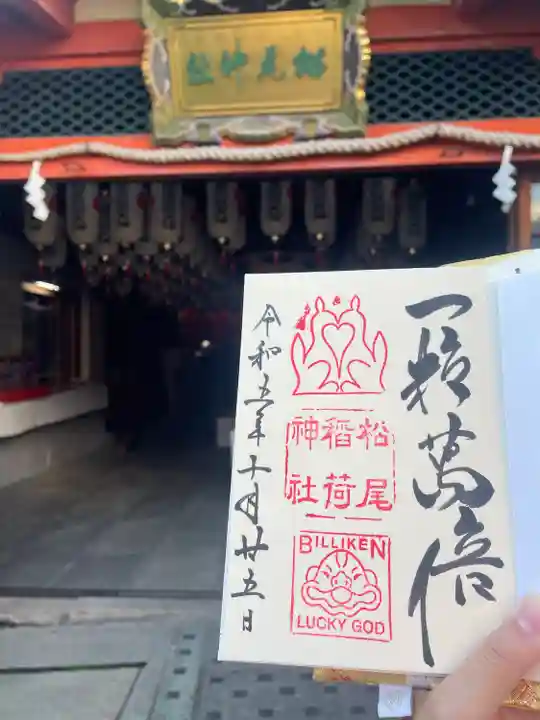 一粒萬倍
松尾
稲荷
神社
BILLIKEN
LUCKY GOD
令和五年十月廿五日